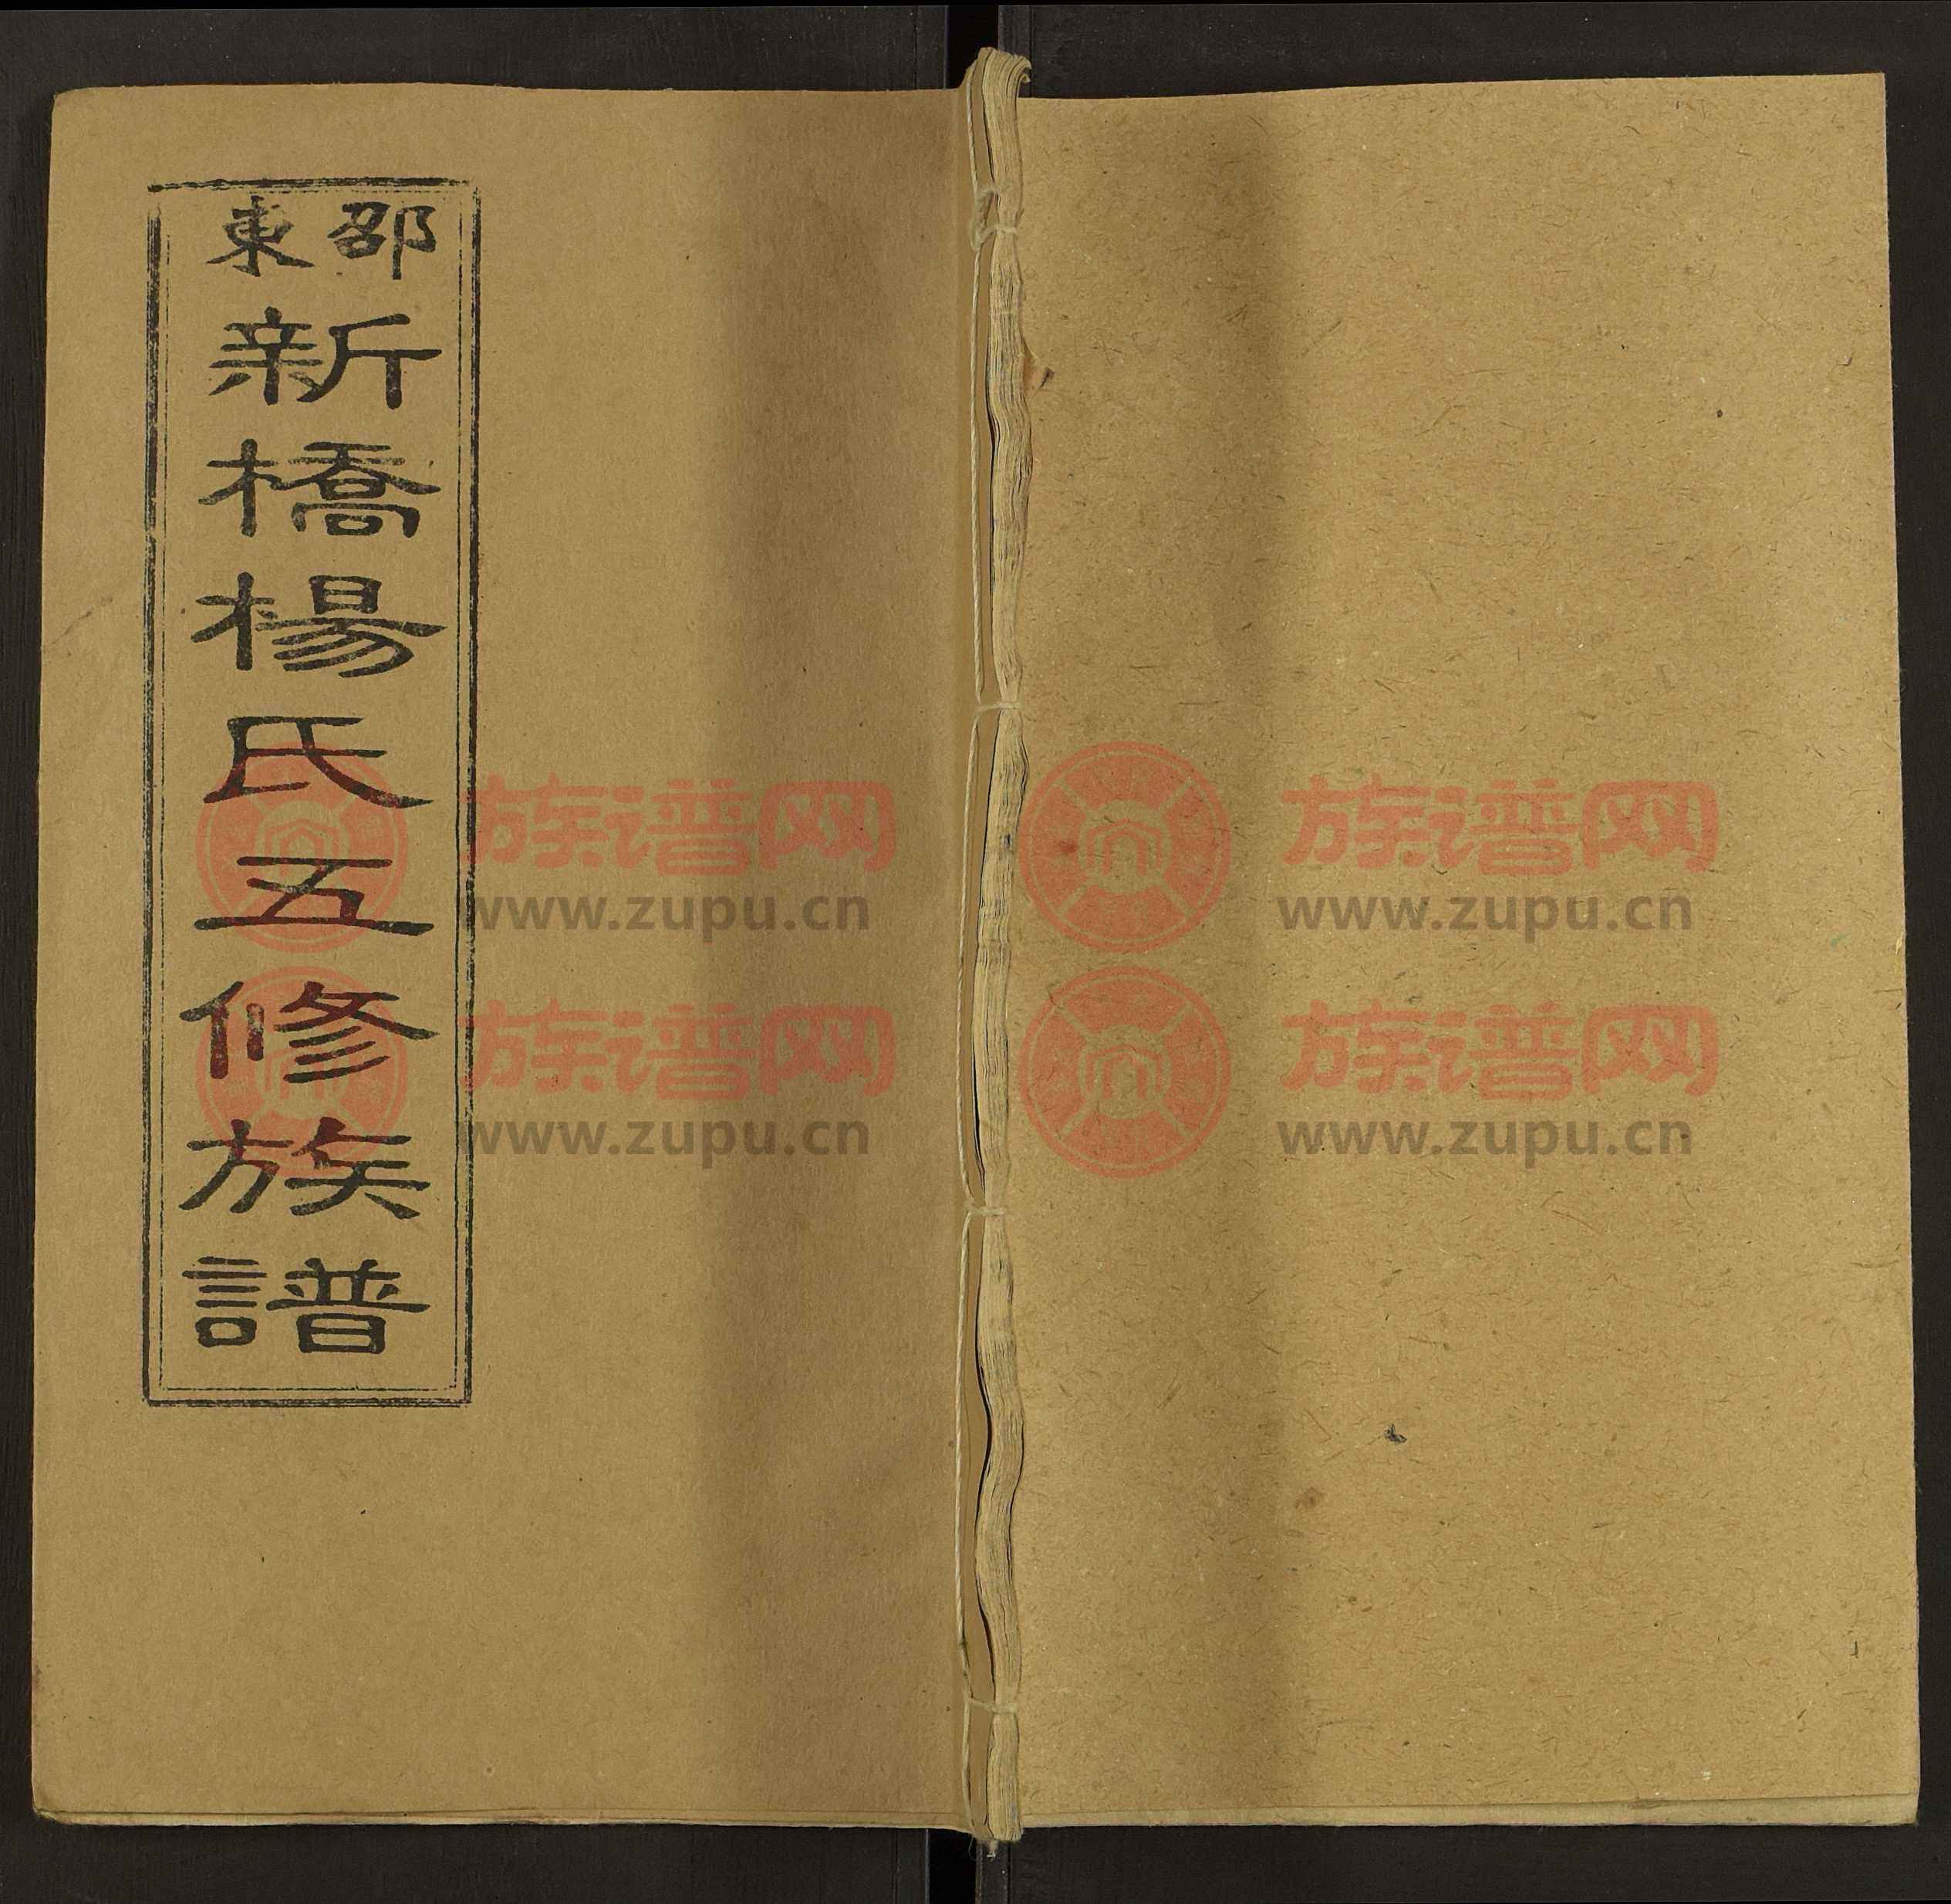 邵東
新橋楊氏五修族譜
族谱网
www.zupu.cn
族谱网
www.zupu.cn
族谱网
www.zupu.cn
族谱网
www.zupu.cn